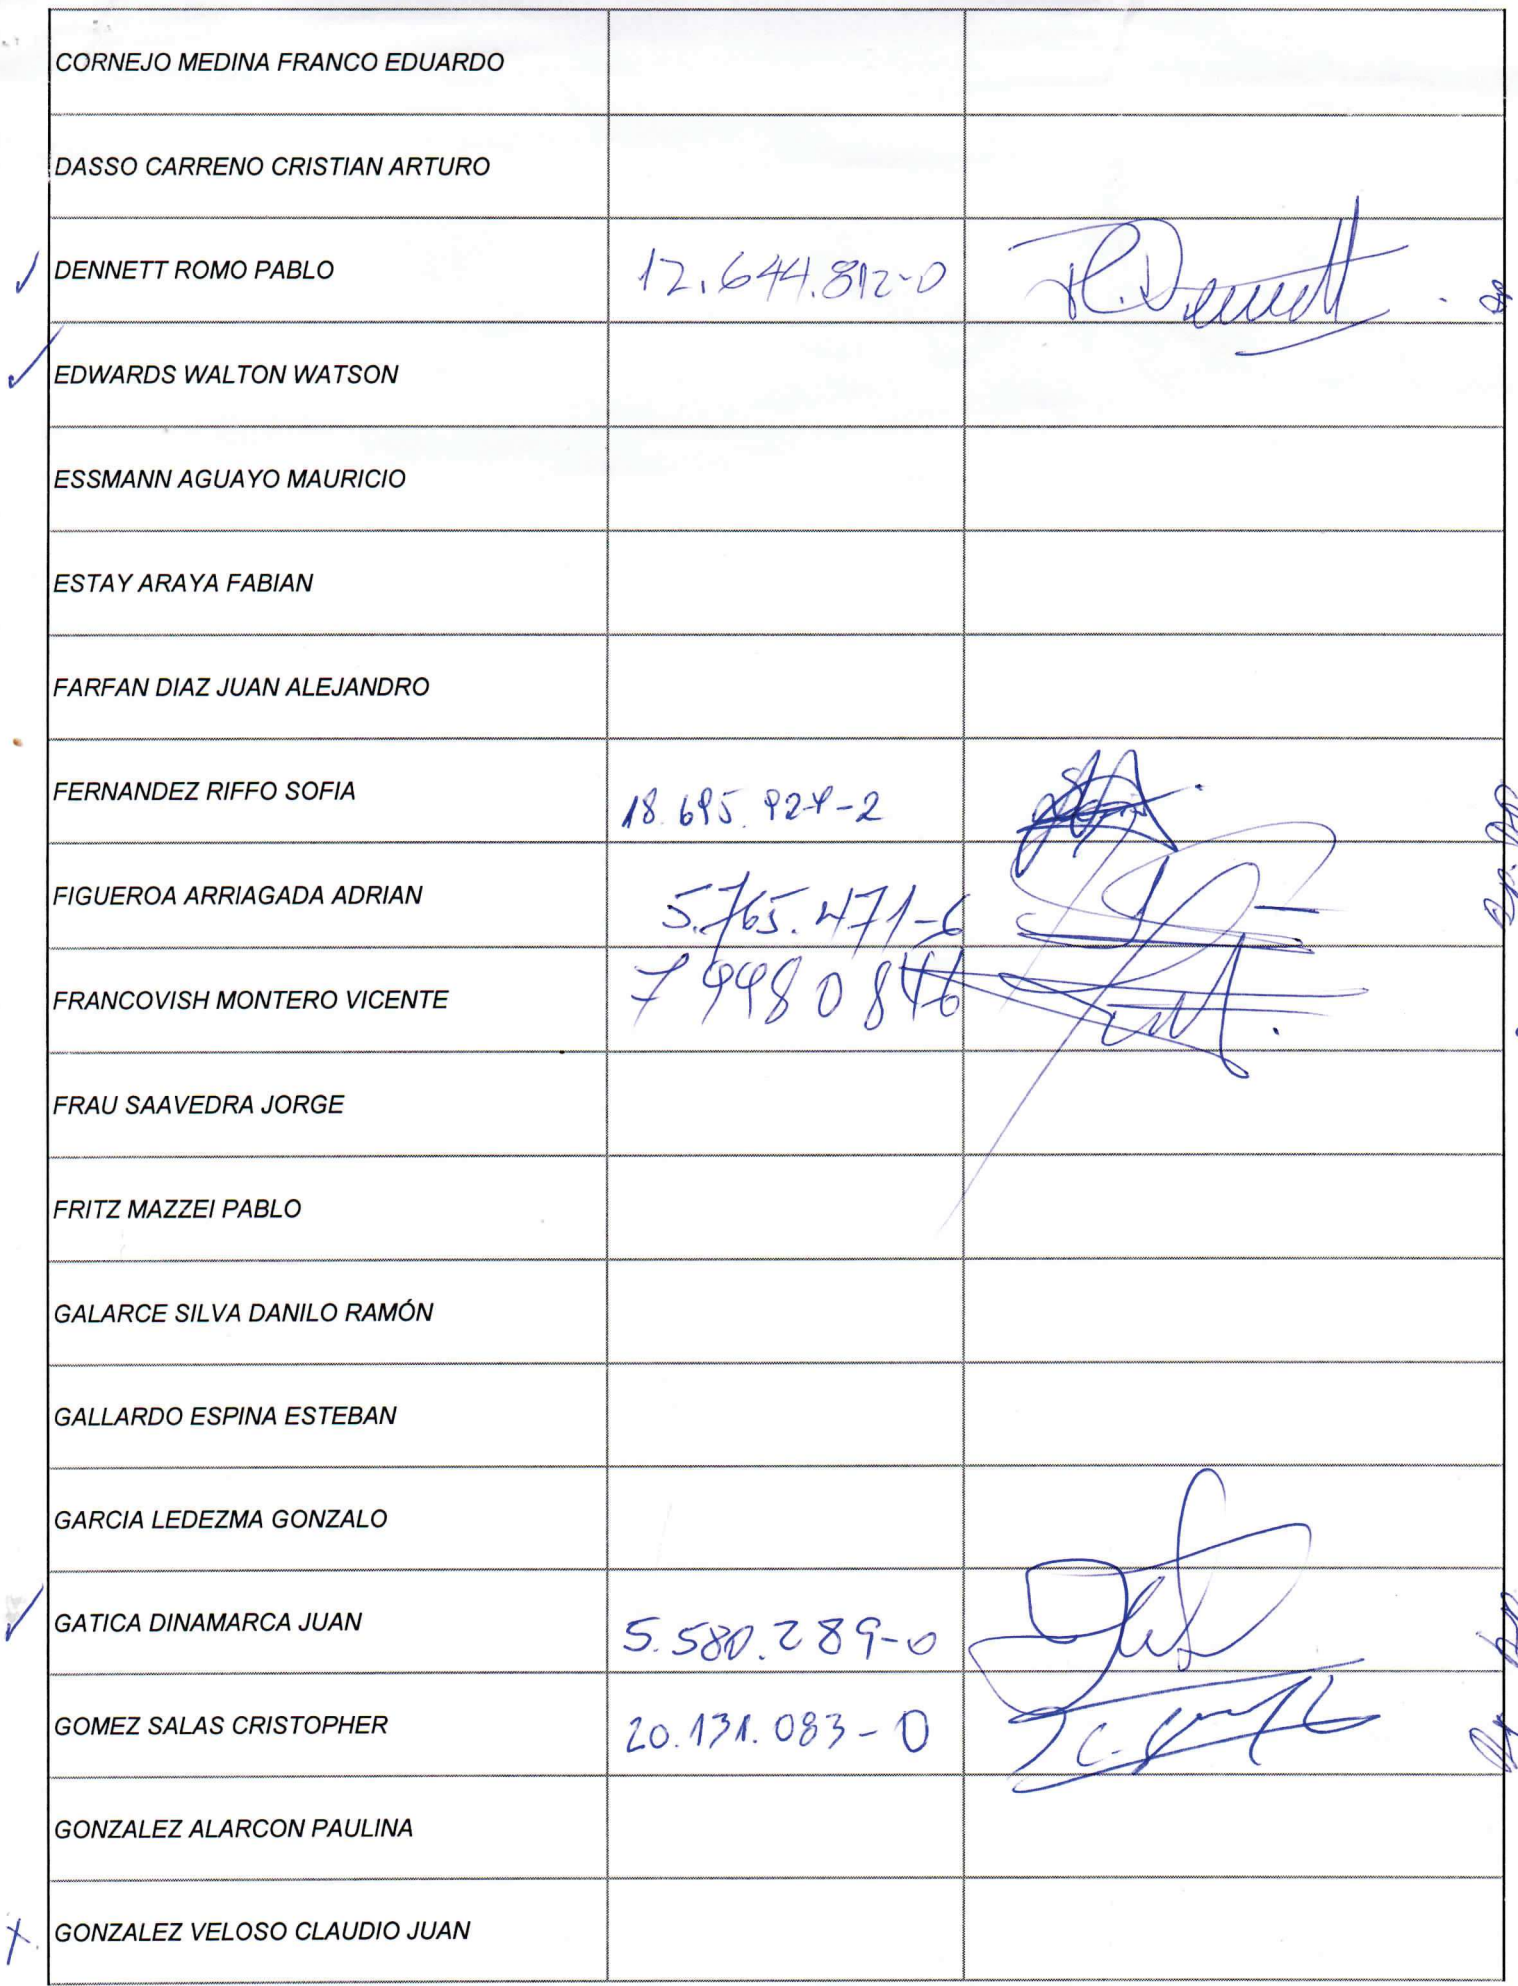 CORNEJO MEDINA FRANCO EDUARDO
DASSO CARRENO CRISTIAN ARTURO
DENNETT ROMO PABLO 12.644.812-0 P.Dennett
EDWARDS WALTON WATSON
ESSMANN AGUAYO MAURICIO
ESTAY ARAYA FABIAN
FARFAN DIAZ JUAN ALEJANDRO
FERNANDEZ RIFFO SOFIA 18.695.924-2
FIGUEROA ARRIAGADA ADRIAN 5.765.471-6
FRANCOVISH MONTERO VICENTE 7 998 0 846
FRAU SAAVEDRA JORGE
FRITZ MAZZEI PABLO
GALARCE SILVA DANILO RAMÓN
GALLARDO ESPINA ESTEBAN
GARCIA LEDEZMA GONZALO
GATICA DINAMARCA JUAN 5.580.289-0
GOMEZ SALAS CRISTOPHER 20.131.083-0
GONZALEZ ALARCON PAULINA
GONZALEZ VELOSO CLAUDIO JUAN